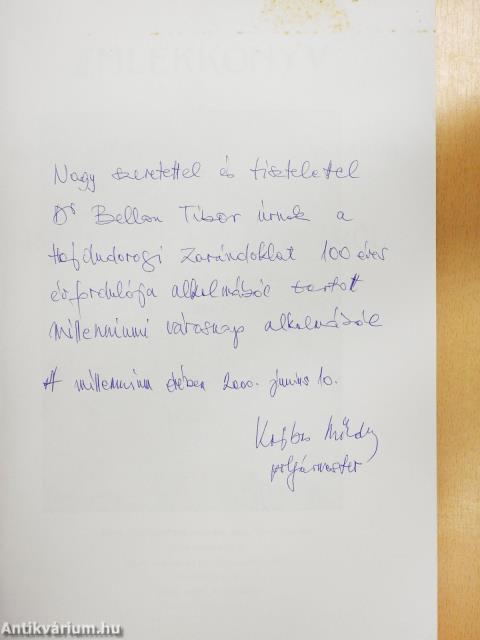 EMLÉKKÖNYV
Nagy szeretettel és tisztelettel
Dr Bellon Tibor úrnak a
Hajdudorogi Zarándoklat 100 éves
évfordulója alkalmából tartott
Millenniumi városnap alkalmából
A millennium évében 2000. június 10.
polgármester
Antikvárium.hu